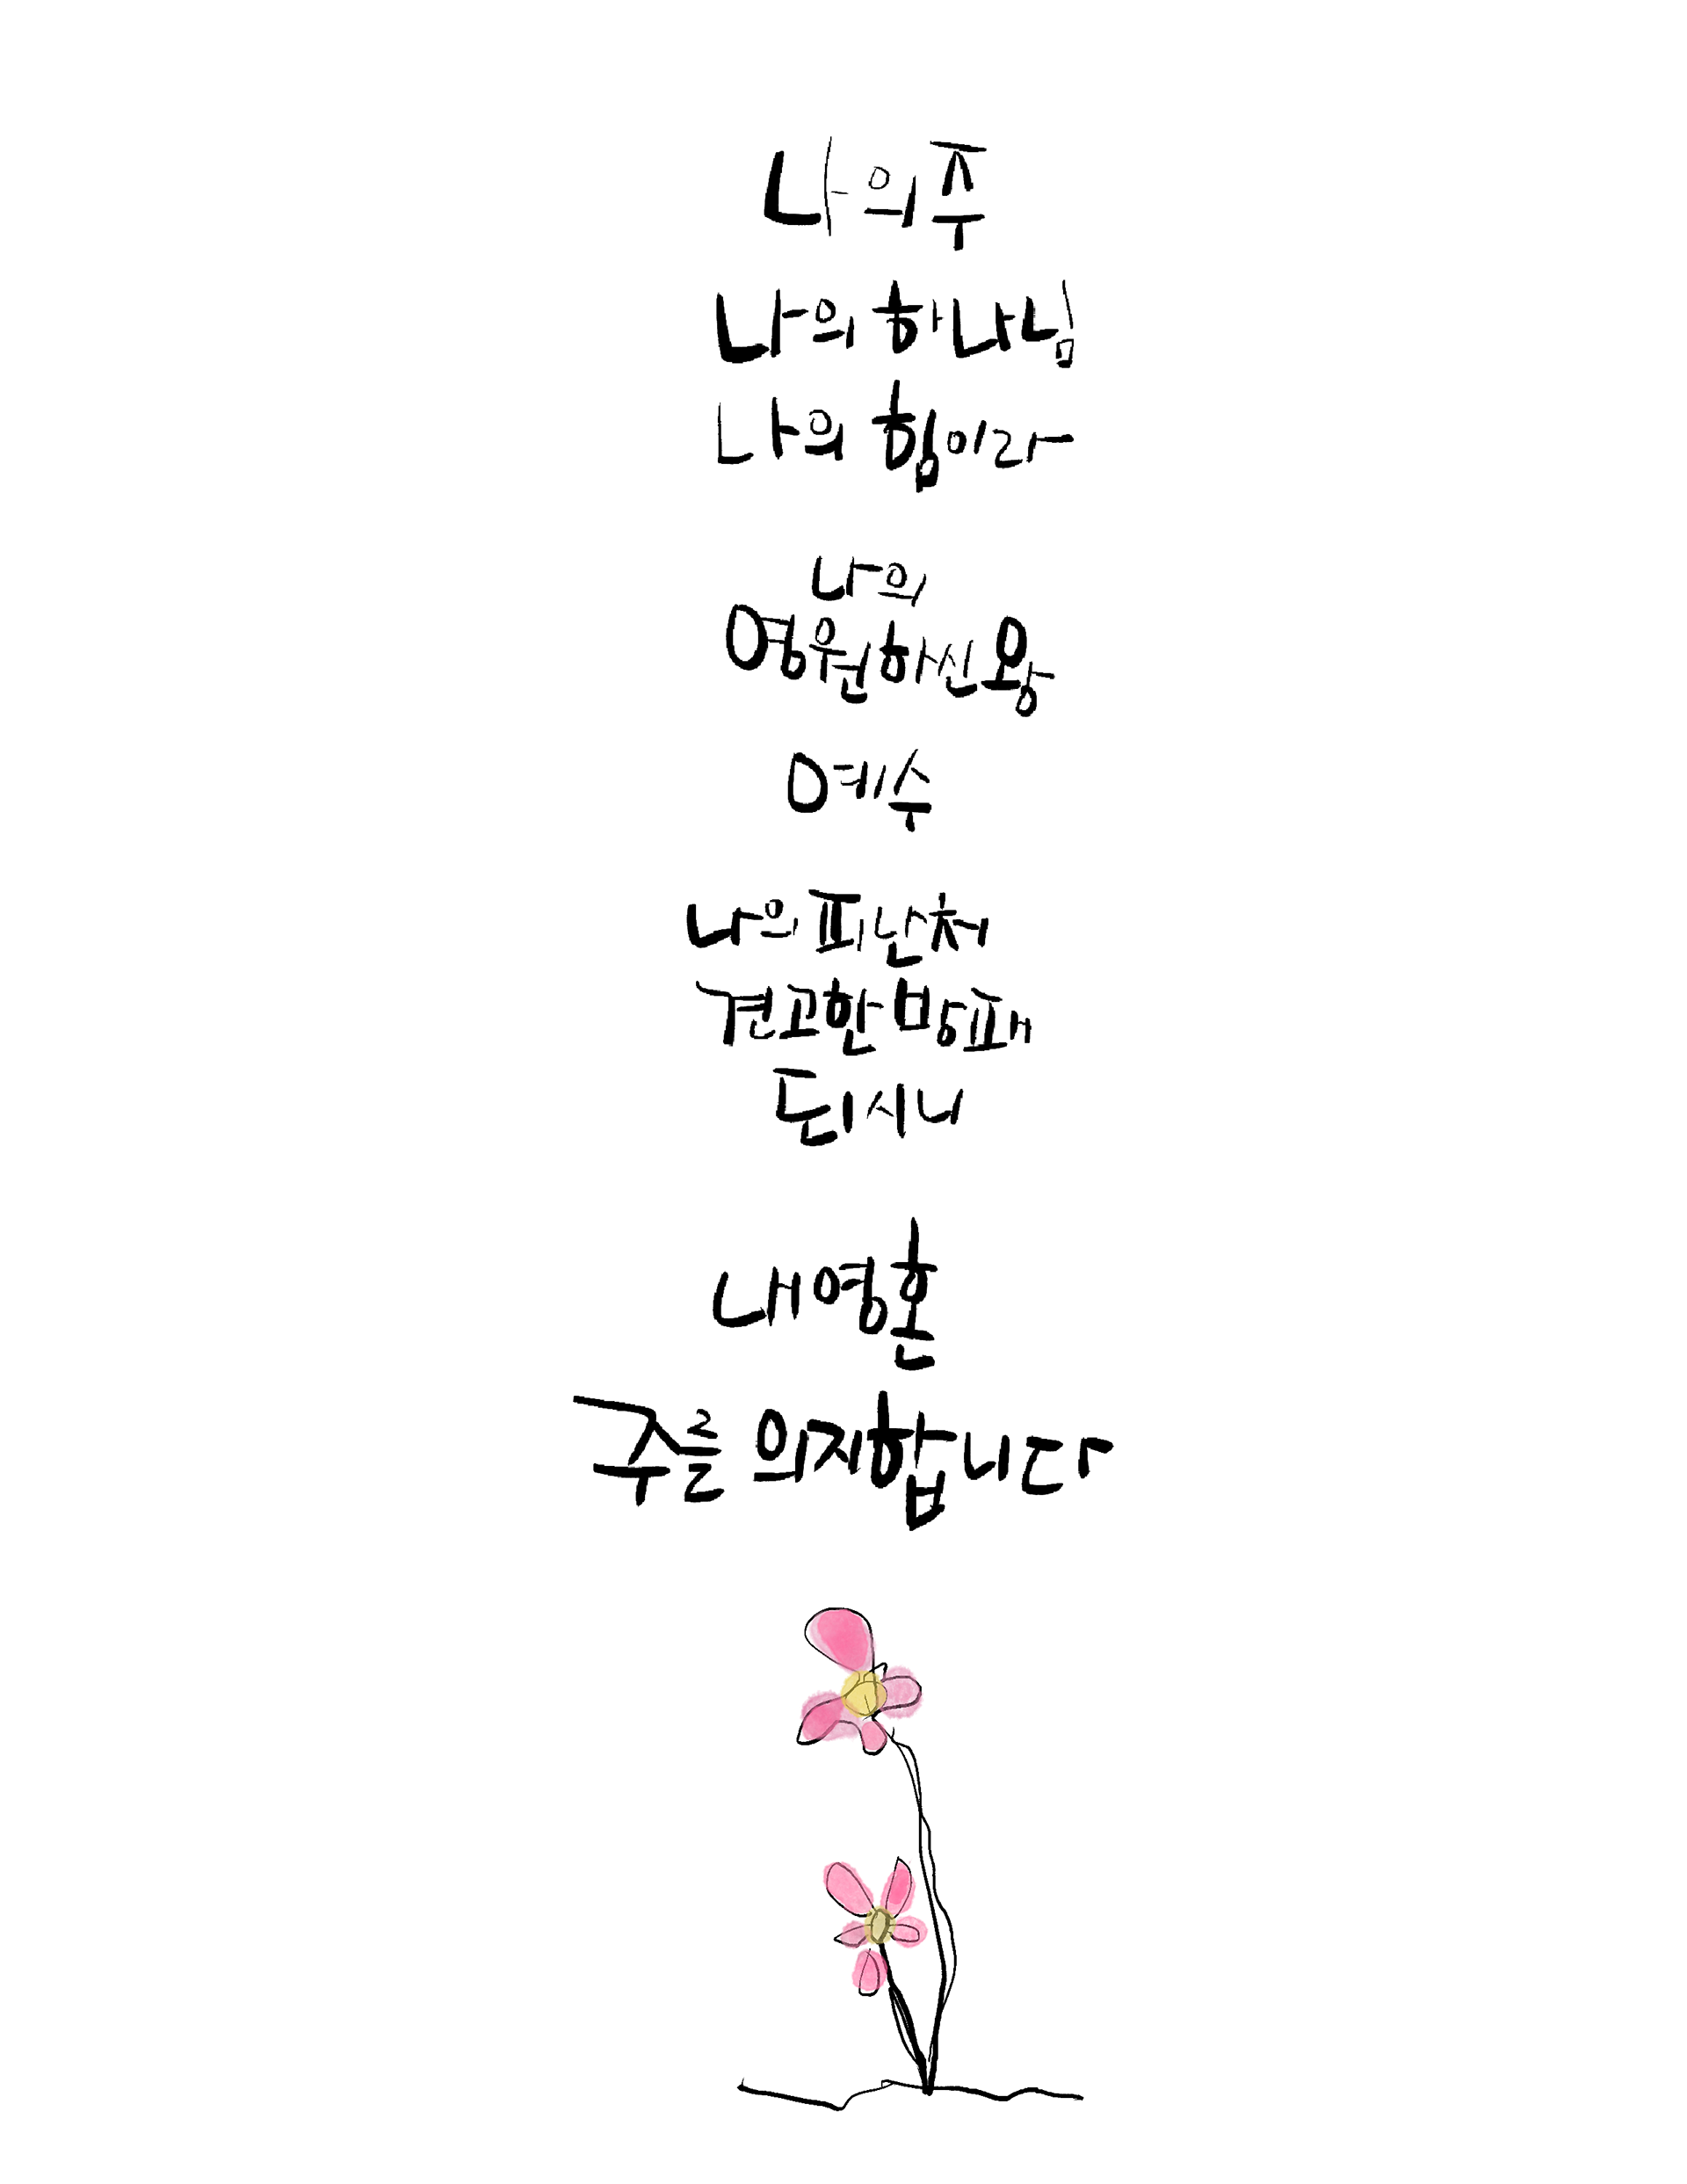 나의 주
나의 하나님
나의 힘이라
나의
영원하신 왕
예수
나의 피난처
견고한 방패
되시니
내 영혼
주를 의지합니다